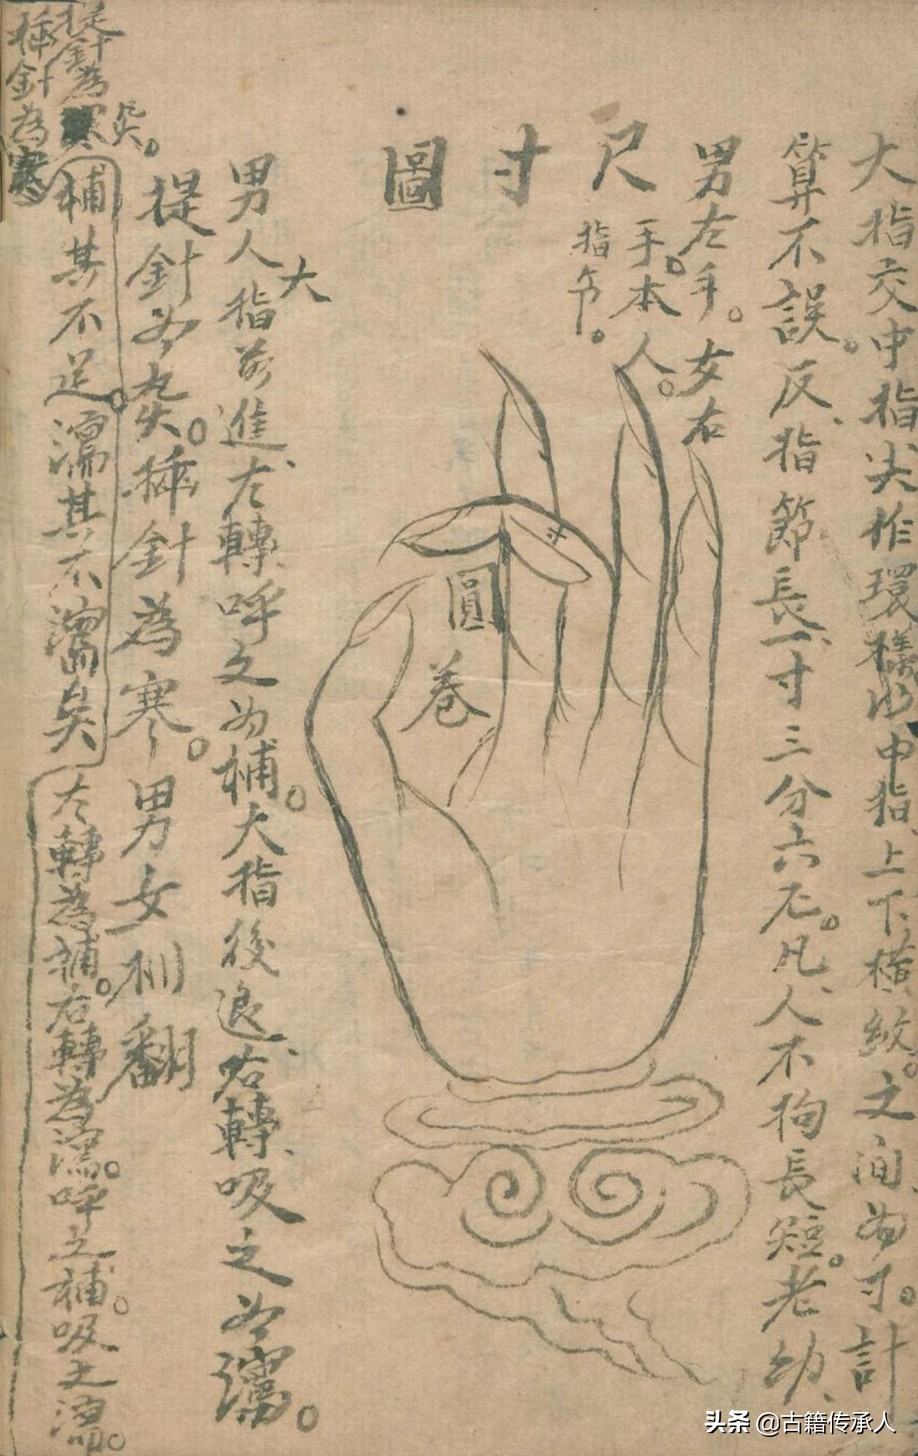 大指交中指尖作環樣以中指上下橫紋。之间为寸。計
算不誤。反指節長一寸三分六厘。凡人不拘長短。老幼、
男左手。女右
手。本人。
指节。
尺寸圖
圓
卷
男人大指前進左轉、呼之为補。大指後退、右轉、吸之为瀉。
提針为
針為寒。男女相翻
補其不足。
其不
矣
左轉為補。右轉為
呼之補。吸之
提針為
針為寒
头条 @古籍传承人